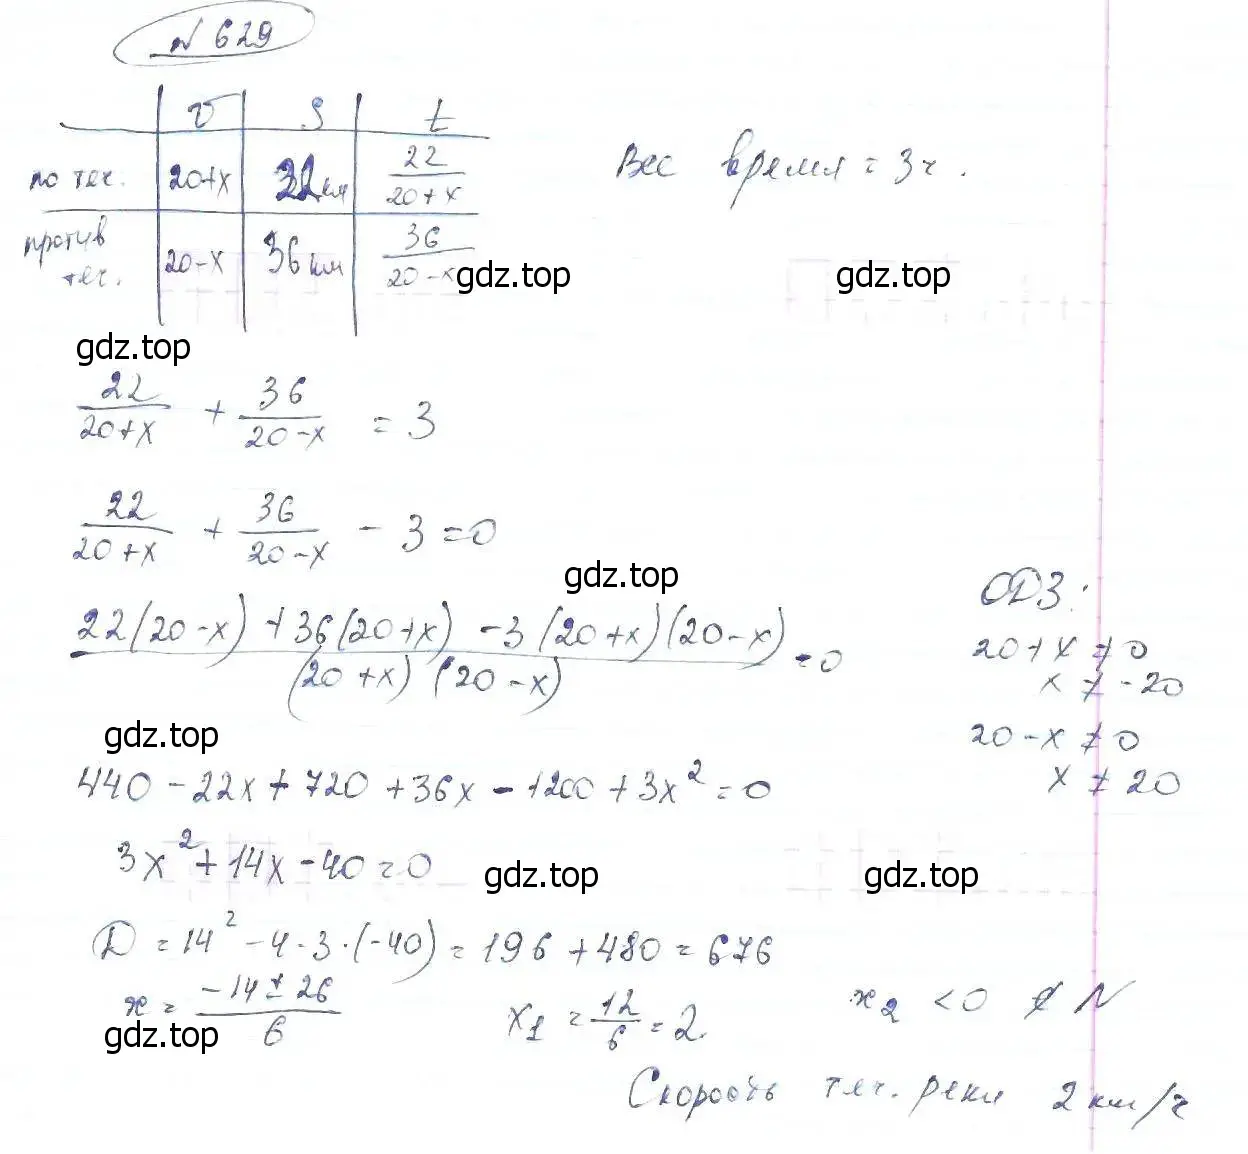 № 629
v S t
по теч. 20+x 32 км 22/(20+x)
против теч. 20-x 36 км 36/(20-x)
Вес время = 3 ч.
gdz.top gdz.top
gdz.top
22/(20+x) + 36/(20-x) = 3
22/(20+x) + 36/(20-x) - 3 = 0
gdz.top
(22(20-x) + 36(20+x) - 3(20+x)(20-x))/((20+x)(20-x)) = 0
ОДЗ:
20+x ≠ 0
x ≠ -20
20-x ≠ 0
x ≠ 20
gdz.top
440 - 22x + 720 + 36x - 1200 + 3x² = 0
3x² + 14x - 40 = 0
gdz.top gdz.top
D = 14² - 4·3·(-40) = 196 + 480 = 676
x = (-14 ± 26)/6 x₁ = 12/6 = 2. x₂ < 0 ∉ N
gdz.top
Скорость теч. реки 2 км/ч